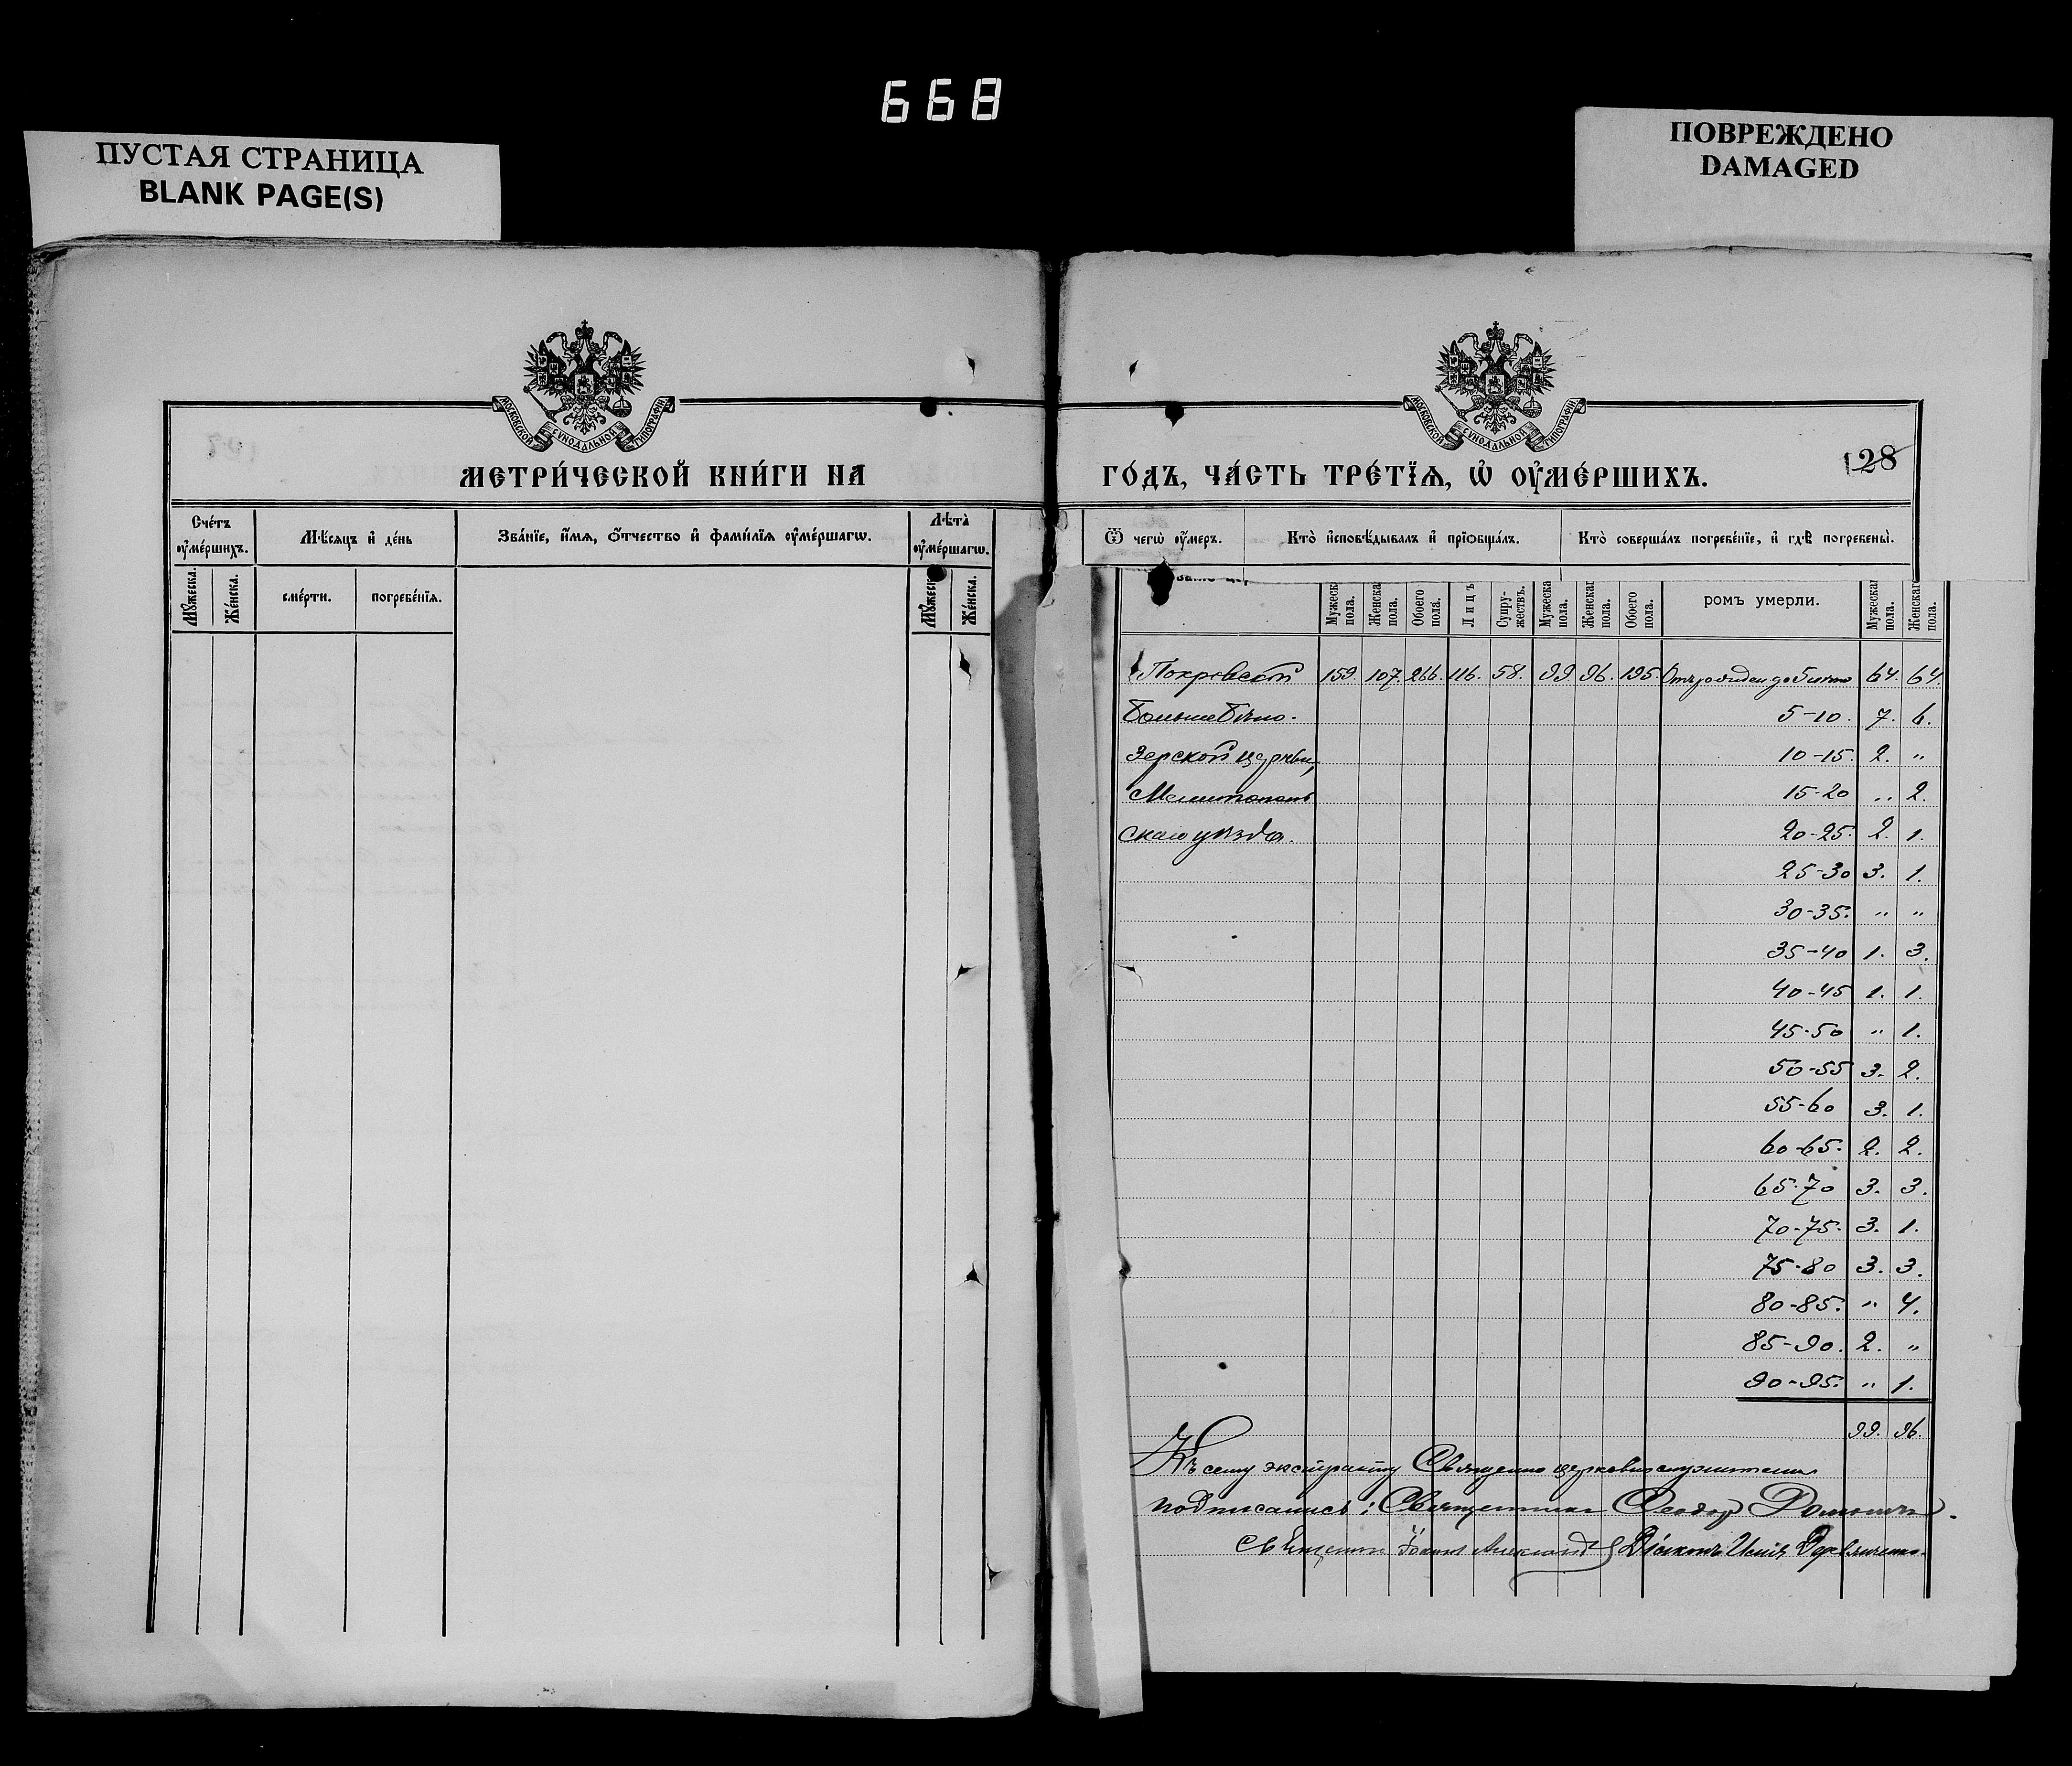 668
ПУСТАЯ СТРАНИЦА
BLANK PAGE(S)
ПОВРЕЖДЕНО
DAMAGED
МОСКОВСКОЙ СѴНОДАЛЬНОЙ ТИПОГРАФІИ
МЕТРИ́ЧЕСКОЙ КНИ́ГИ НА
Сче́тъ ᲂу҆ме́ршихъ.
Мѣ́сяцъ и҆ де́нь
Зва́нїе, и҆́мѧ, ѻ҆́тчество и҆ фами́лїѧ ᲂу҆ме́ршагѡ.
Лѣта̀ ᲂу҆ме́ршагѡ.
Мꙋ́жеска.
Же́нска.
сме́рти.
погребе́нїѧ.
Мꙋ́жеск
Же́нска.
МОСКОВСКОЙ СѴНОДАЛЬНОЙ ТИПОГРАФІИ
128
ГО́ДЪ, ЧА́СТЬ ТРЕ́ТЇѦ, Ѡ҆ ОУ҆МЕ́РШИХЪ.
Ѿ чегѡ̀ ᲂу҆́меръ.
Кто̀ и҆сповѣ́дывалъ и҆ прїѡбща́лъ.
Кто̀ соверша́лъ погребе́нїе, и҆ гдѣ̀ погребены̀.
Мужеска пола.
Женска пола.
Обоего пола.
Лицъ
Супружествъ.
Мужеска пола.
Женскаг пола.
Обоего пола.
ромъ умерли.
Мужеска пола.
Женскаг пола.
Покровской 159. 107. 266. 116. 58. 99 96. 195. Отъ рожден. до 5 лѣтъ 64. 64.
Больше Бѣло- 5-10. 7. 6.
зерской церкви, 10-15. 2. "
Мелитополь 15-20 " 2.
скаго уѣзда. 20-25. 2. 1.
25-30 3. 1.
30-35. " "
35-40 1. 3.
40-45 1. 1.
45-50 " 1.
50-55 3. 2.
55-60 3. 1.
60-65. 2. 2.
65-70 3. 3.
70-75. 3. 1.
75-80 3. 3.
80-85. " 4.
85-90. 2. "
90-95. " 1.
99. 96.
Къ сему экстракту Священно церковно служители
подписались: Священникъ Ѳеодоръ
Священникъ Іоаннъ Александ Діаконъ